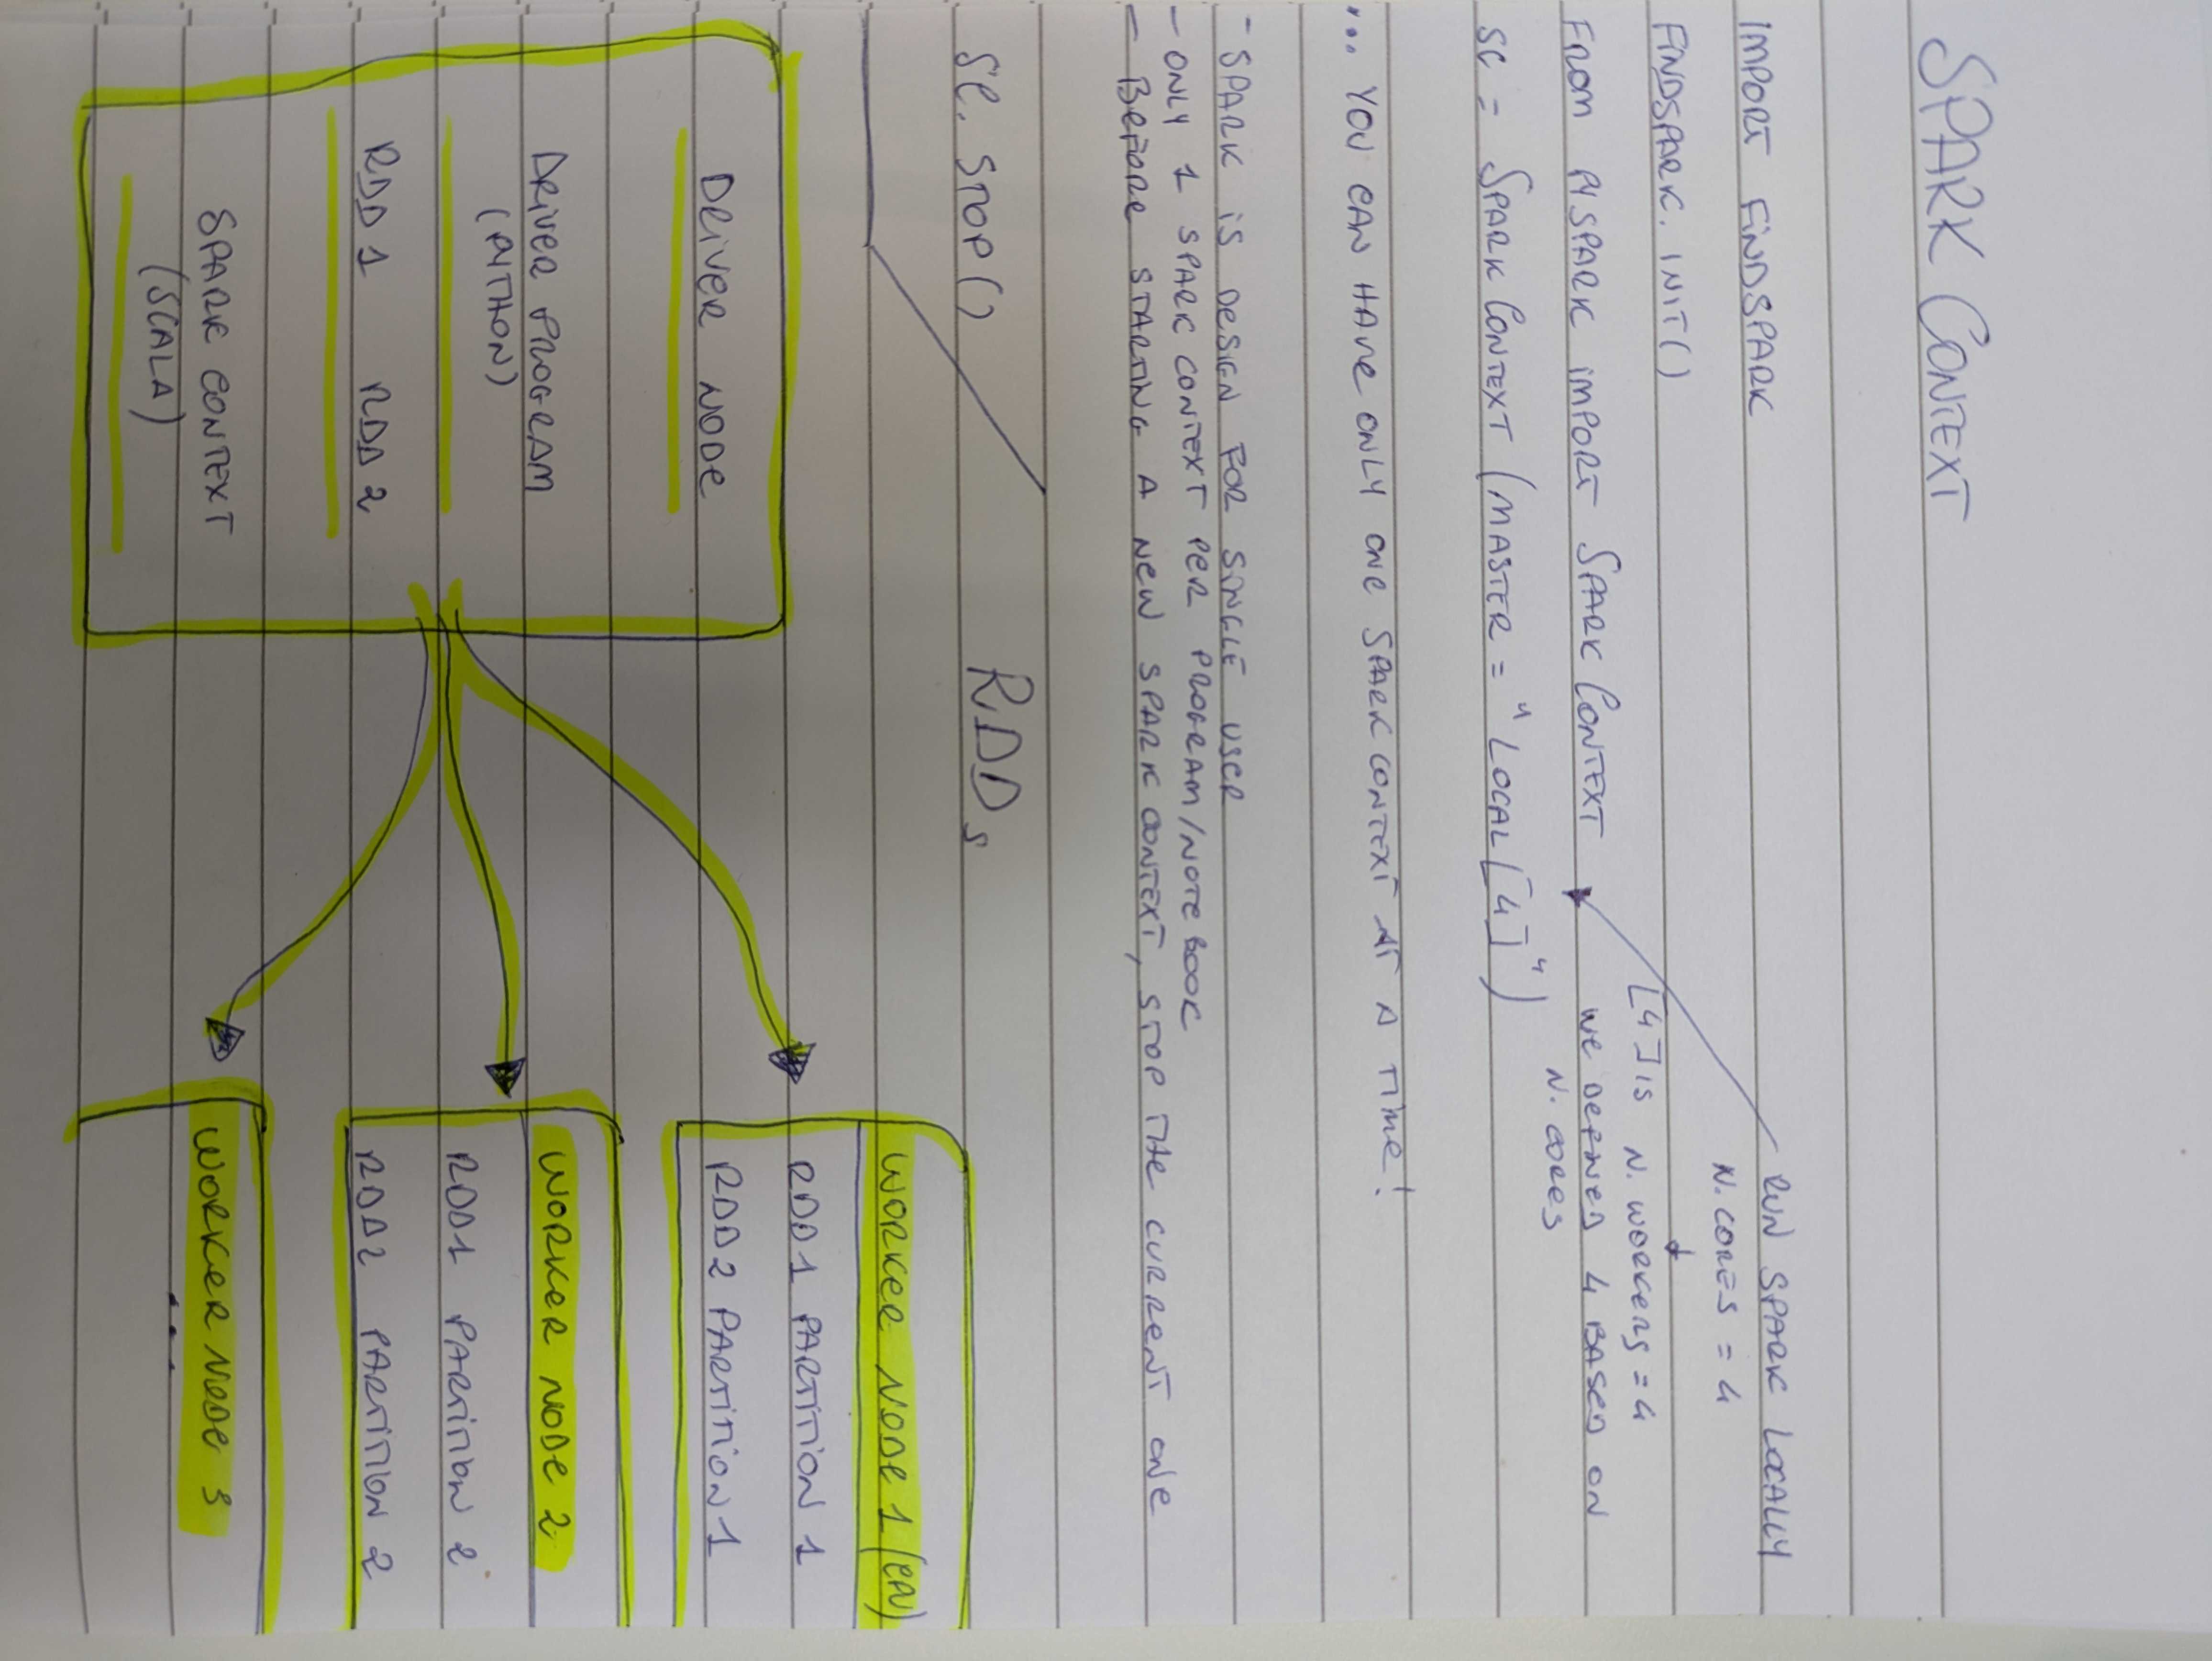 SPARK CONTEXT
IMPORT FINDSPARK
FINDSPARK. INIT()
FROM PYSPARK IMPORT SPARK CONTEXT
SC = SPARK CONTEXT (MASTER = "LOCAL[4]")
RUN SPARK LOCALLY
N. CORES = 4
[4] IS N. WORKERS = 4
WE DEFINED 4 BASED ON
N. CORES
... YOU CAN HAVE ONLY ONE SPARK CONTEXT AT A TIME!
- SPARK IS DESIGN FOR SINGLE USER
- ONLY 1 SPARK CONTEXT PER PROGRAM/NOTEBOOK
- BEFORE STARTING A NEW SPARK CONTEXT, STOP THE CURRENT ONE
SC. STOP()
RDDs
DRIVER NODE
DRIVER PROGRAM
(PYTHON)
RDD 1 RDD 2
SPARK CONTEXT
(SCALA)
WORKER NODE 1 (CPU)
RDD1 PARTITION 1
RDD2 PARTITION 1
WORKER NODE 2
RDD1 PARTITION 2
RDD2 PARTITION 2
WORKER NODE 3
...